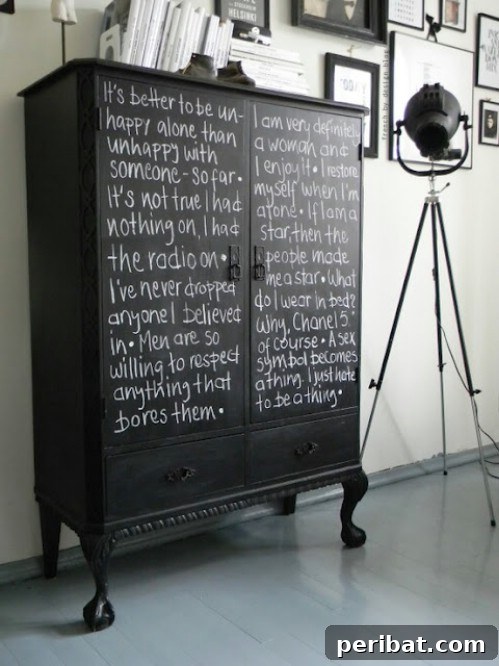 HELSINKI
french by design blog
It's better to be un-
happy alone than
unhappy with
someone - so far •
It's not true I had
nothing on, I had
the radio on •
I've never dropped
anyone I believed
in • Men are so
willing to respect
anything that
bores them •
I am very definitely
a woman, and
I enjoy it • I restore
myself when I'm
alone • If I am a
star, then the
people made
me a star • What
do I wear in bed?
Why, Chanel 5,
of course • A sex
symbol becomes
a thing. I just hate
to be a thing •
peribat.com